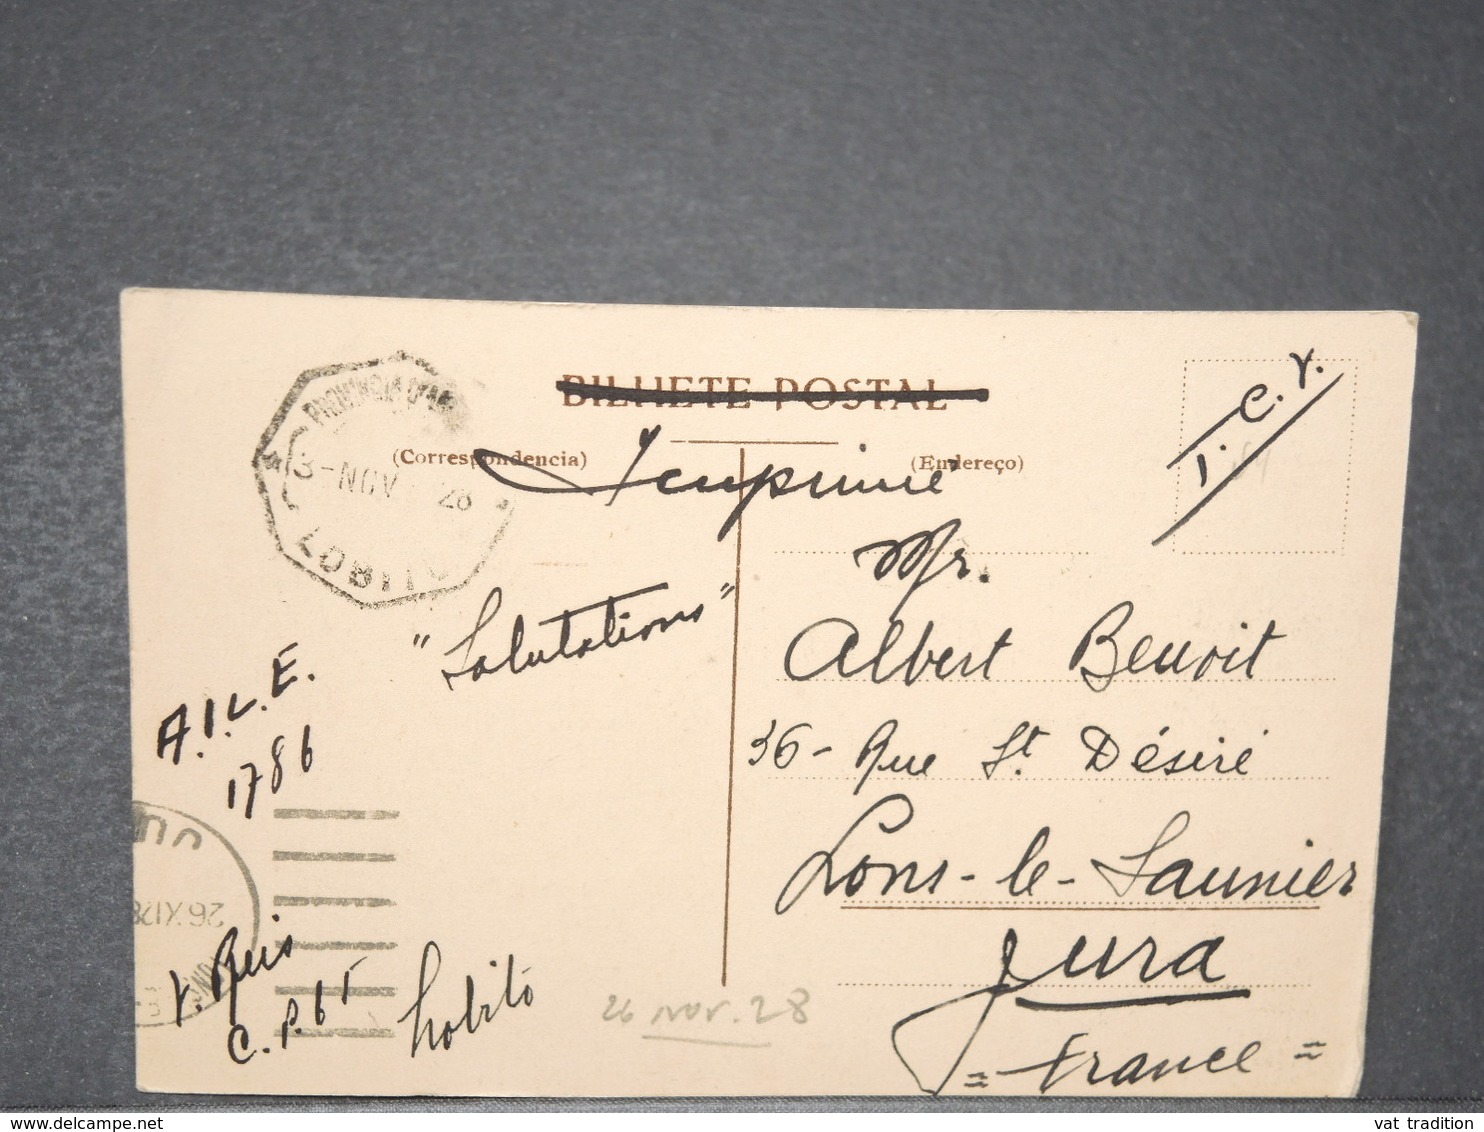 BILHETE POSTAL
(Correspondencia)
(Endereço)
Imprimé
T. C. V.
PROVINCIA D'
3-NOV 28
LOBITO
"Salutations"
Mr.
Albert Benoit
36- Rue St. Désiré
Lons-le-Saunier
Jura
= France =
A.I.L.E.
1786
26 XI 28
V. Reis
C. P. 61
Lobito
26 nov. 28
vat tradition